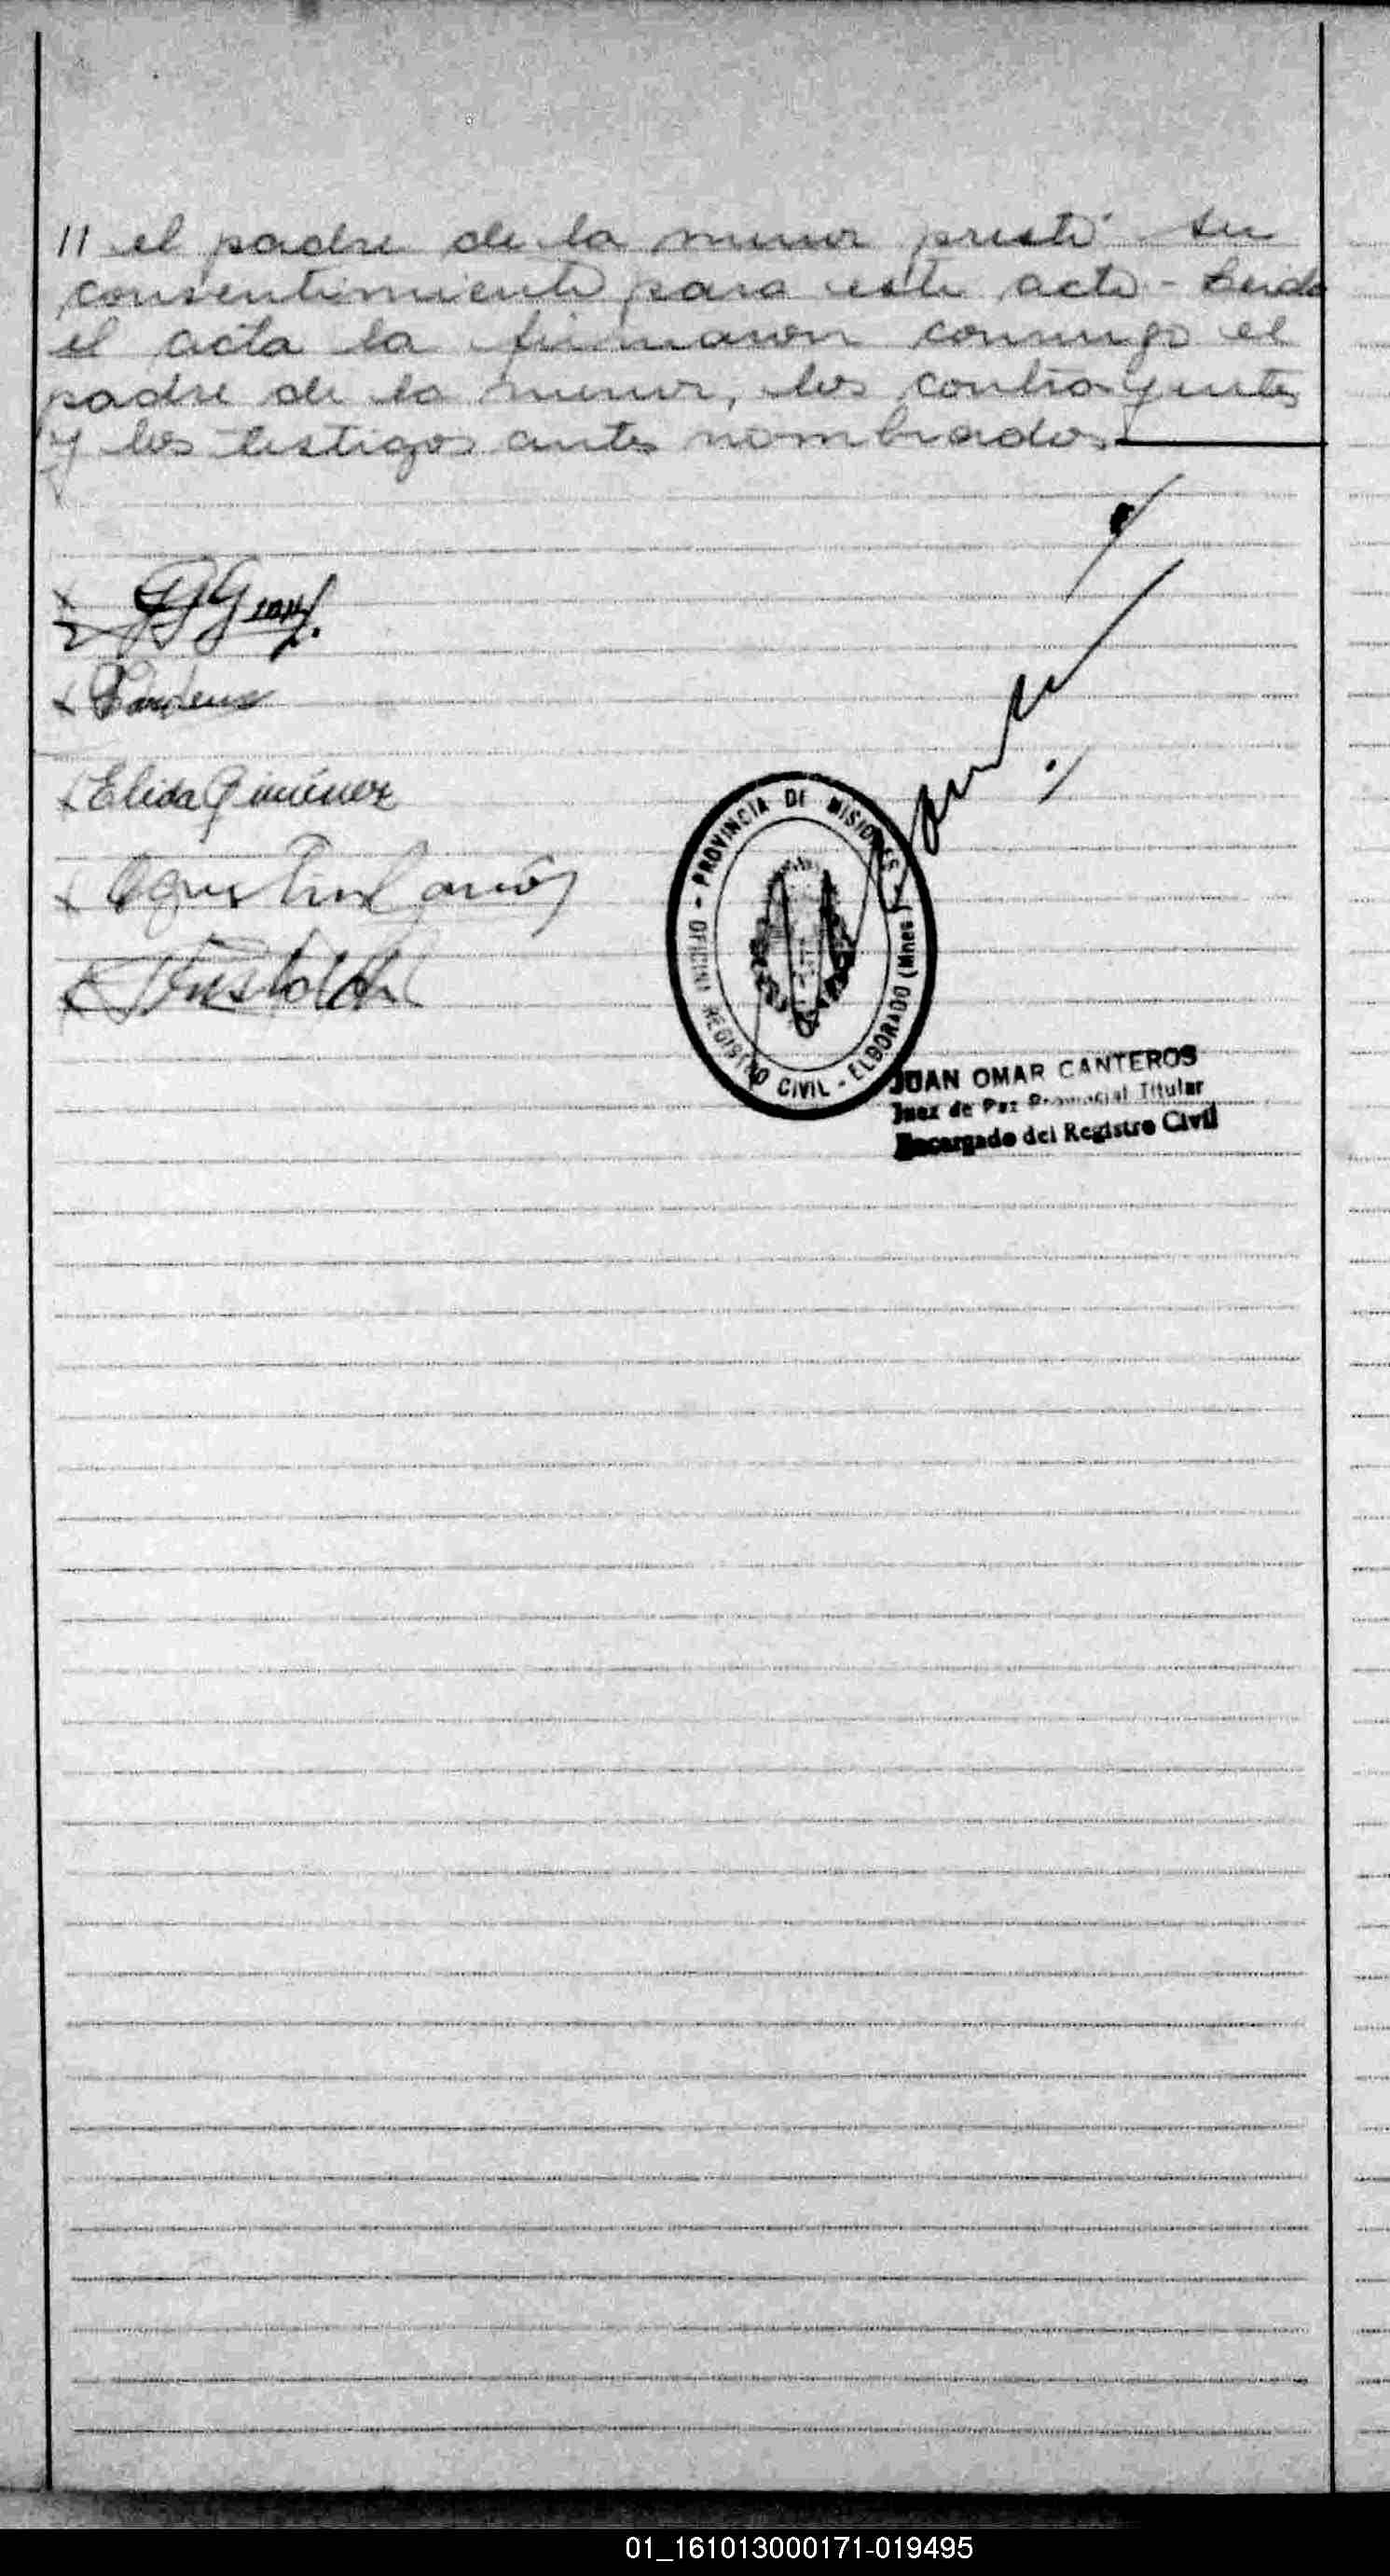 11 el padre de la menor prestó su
consentimiento para este acto - Leida
el acta la firmaron conmigo el
padre de la menor, los contrayentes
y los testigos antes nombrados
Elida Giménez
Agustin
OFICINA REGISTRO CIVIL - ELDORADO (Mnes) - PROVINCIA DE MISIONES
JUAN OMAR CANTEROS
Juez de Paz Provincial Titular
Encargado del Registro Civil
01_161013000171-019495